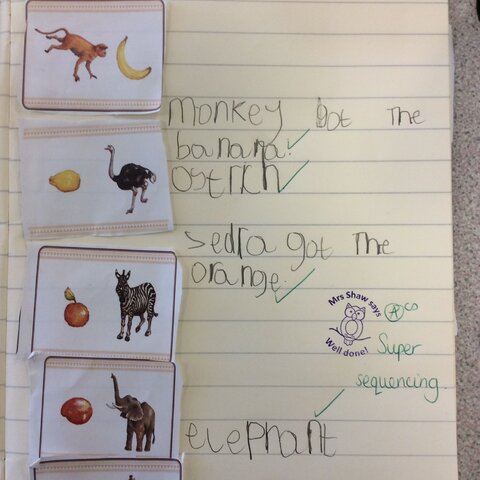 monkey got the
banana.
ostrich
sedra got the
orange.
Mrs Shaw says
Well done!
A CO
Super
sequencing.
elephant